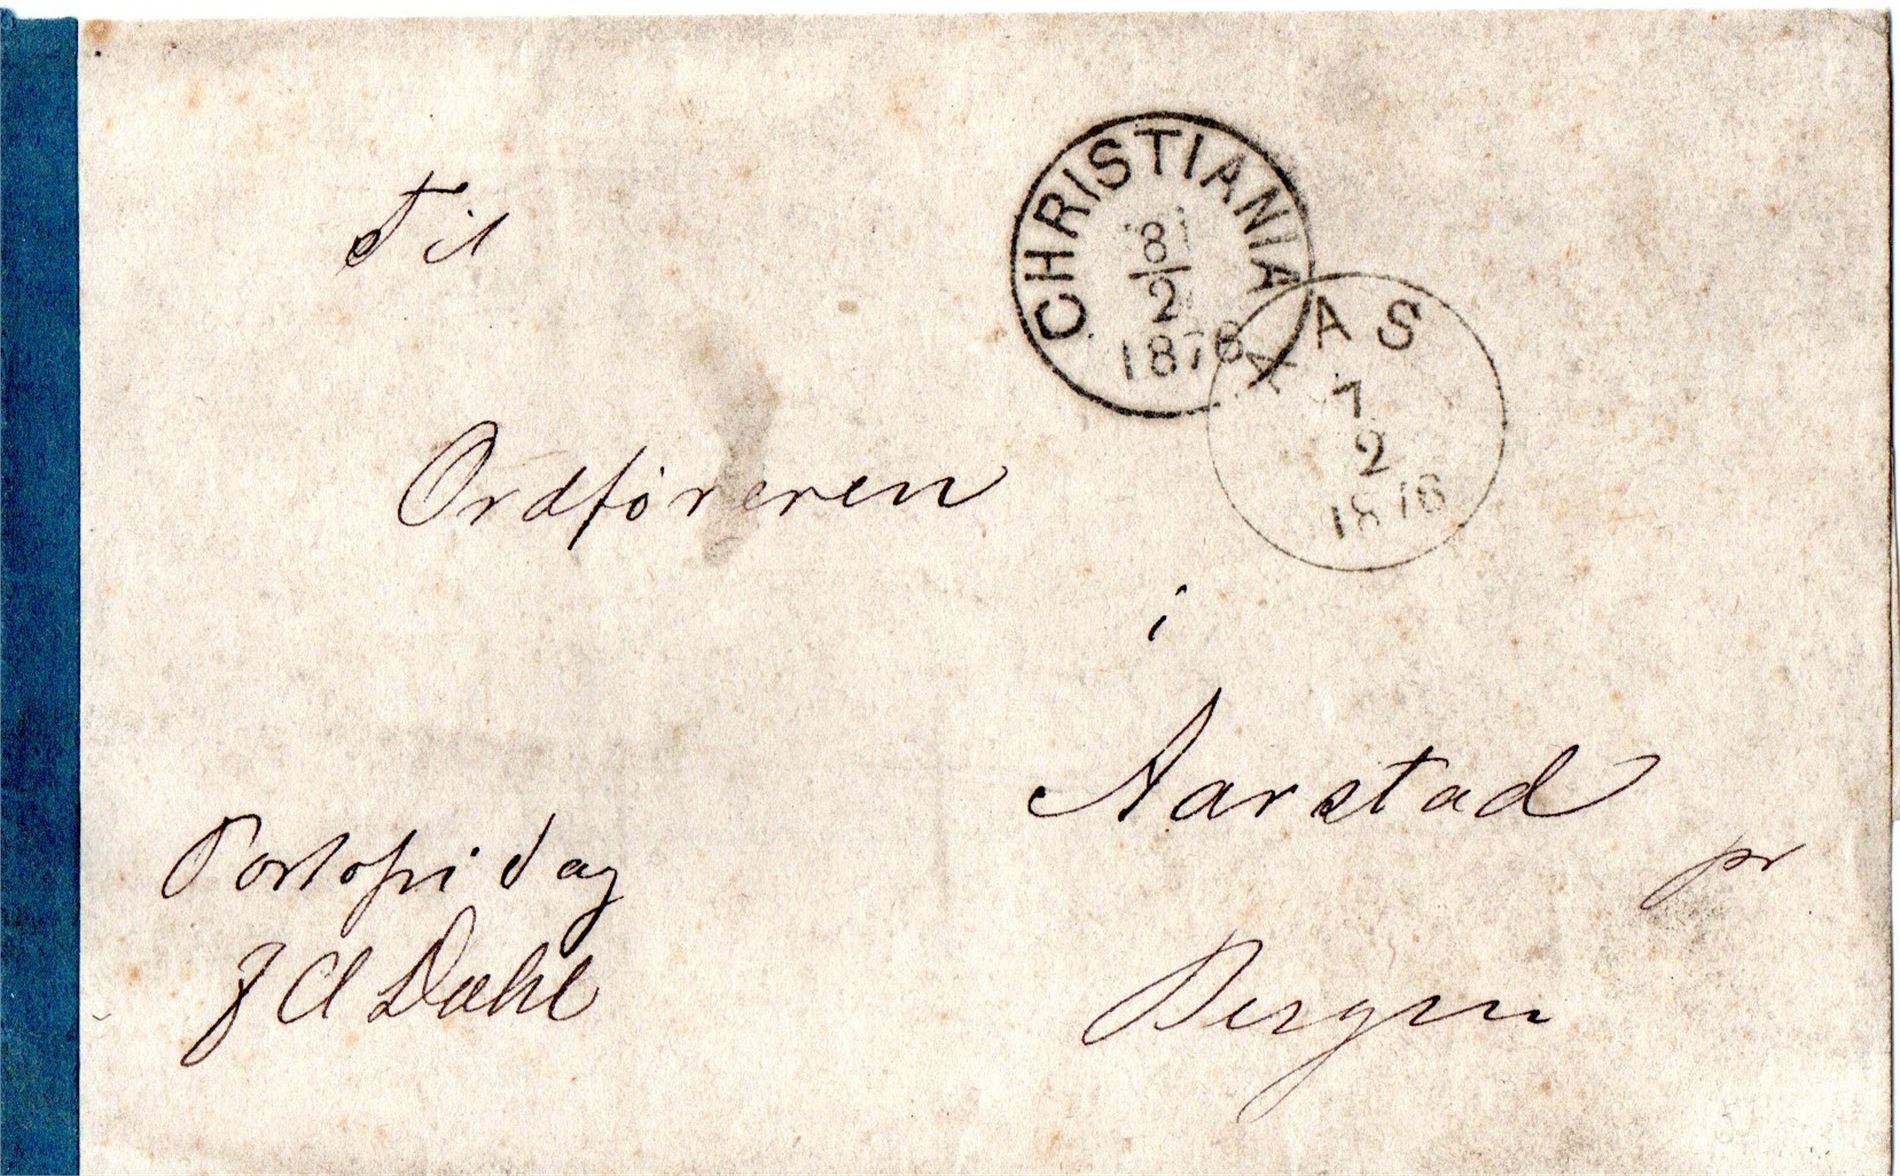 Til
CHRISTIANIA
8
2
1876
AAS
7
2
1876
Ordføreren
i
Aarstad
pr
Bergen
Portofri Sag
Dahl